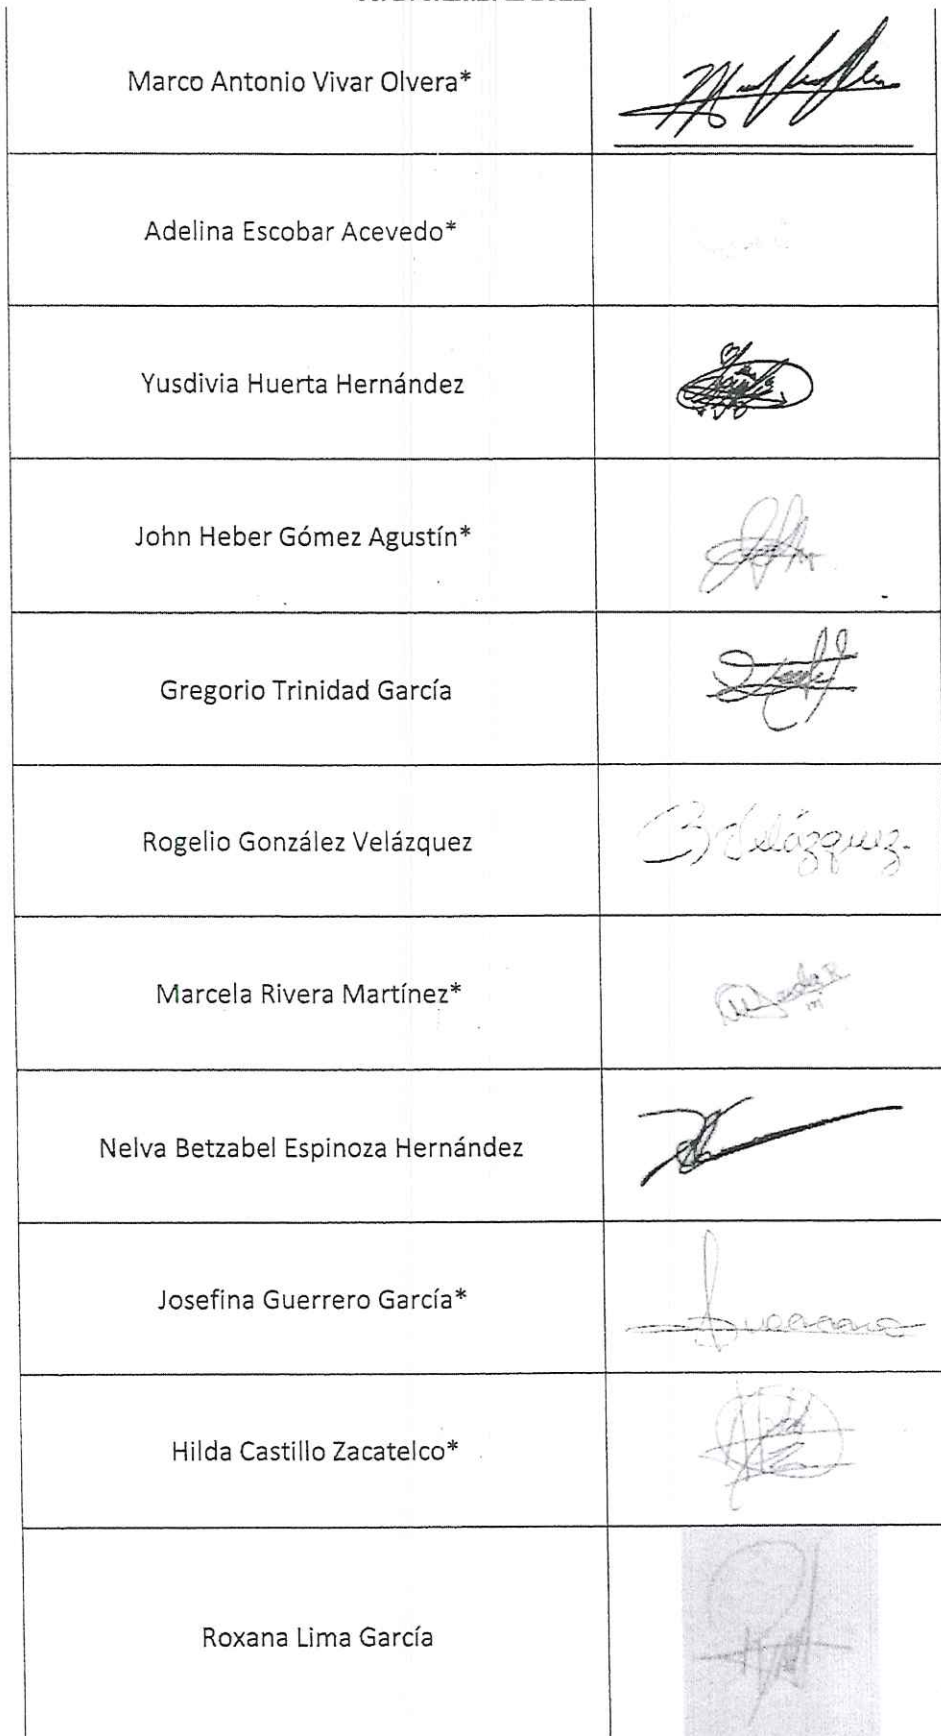 Marco Antonio Vivar Olvera*
Adelina Escobar Acevedo*
Yusdivia Huerta Hernández
John Heber Gómez Agustín*
Gregorio Trinidad García
Rogelio González Velázquez
Velázquez.
Marcela Rivera Martínez*
Nelva Betzabel Espinoza Hernández
Josefina Guerrero García*
Hilda Castillo Zacatelco*
Roxana Lima García